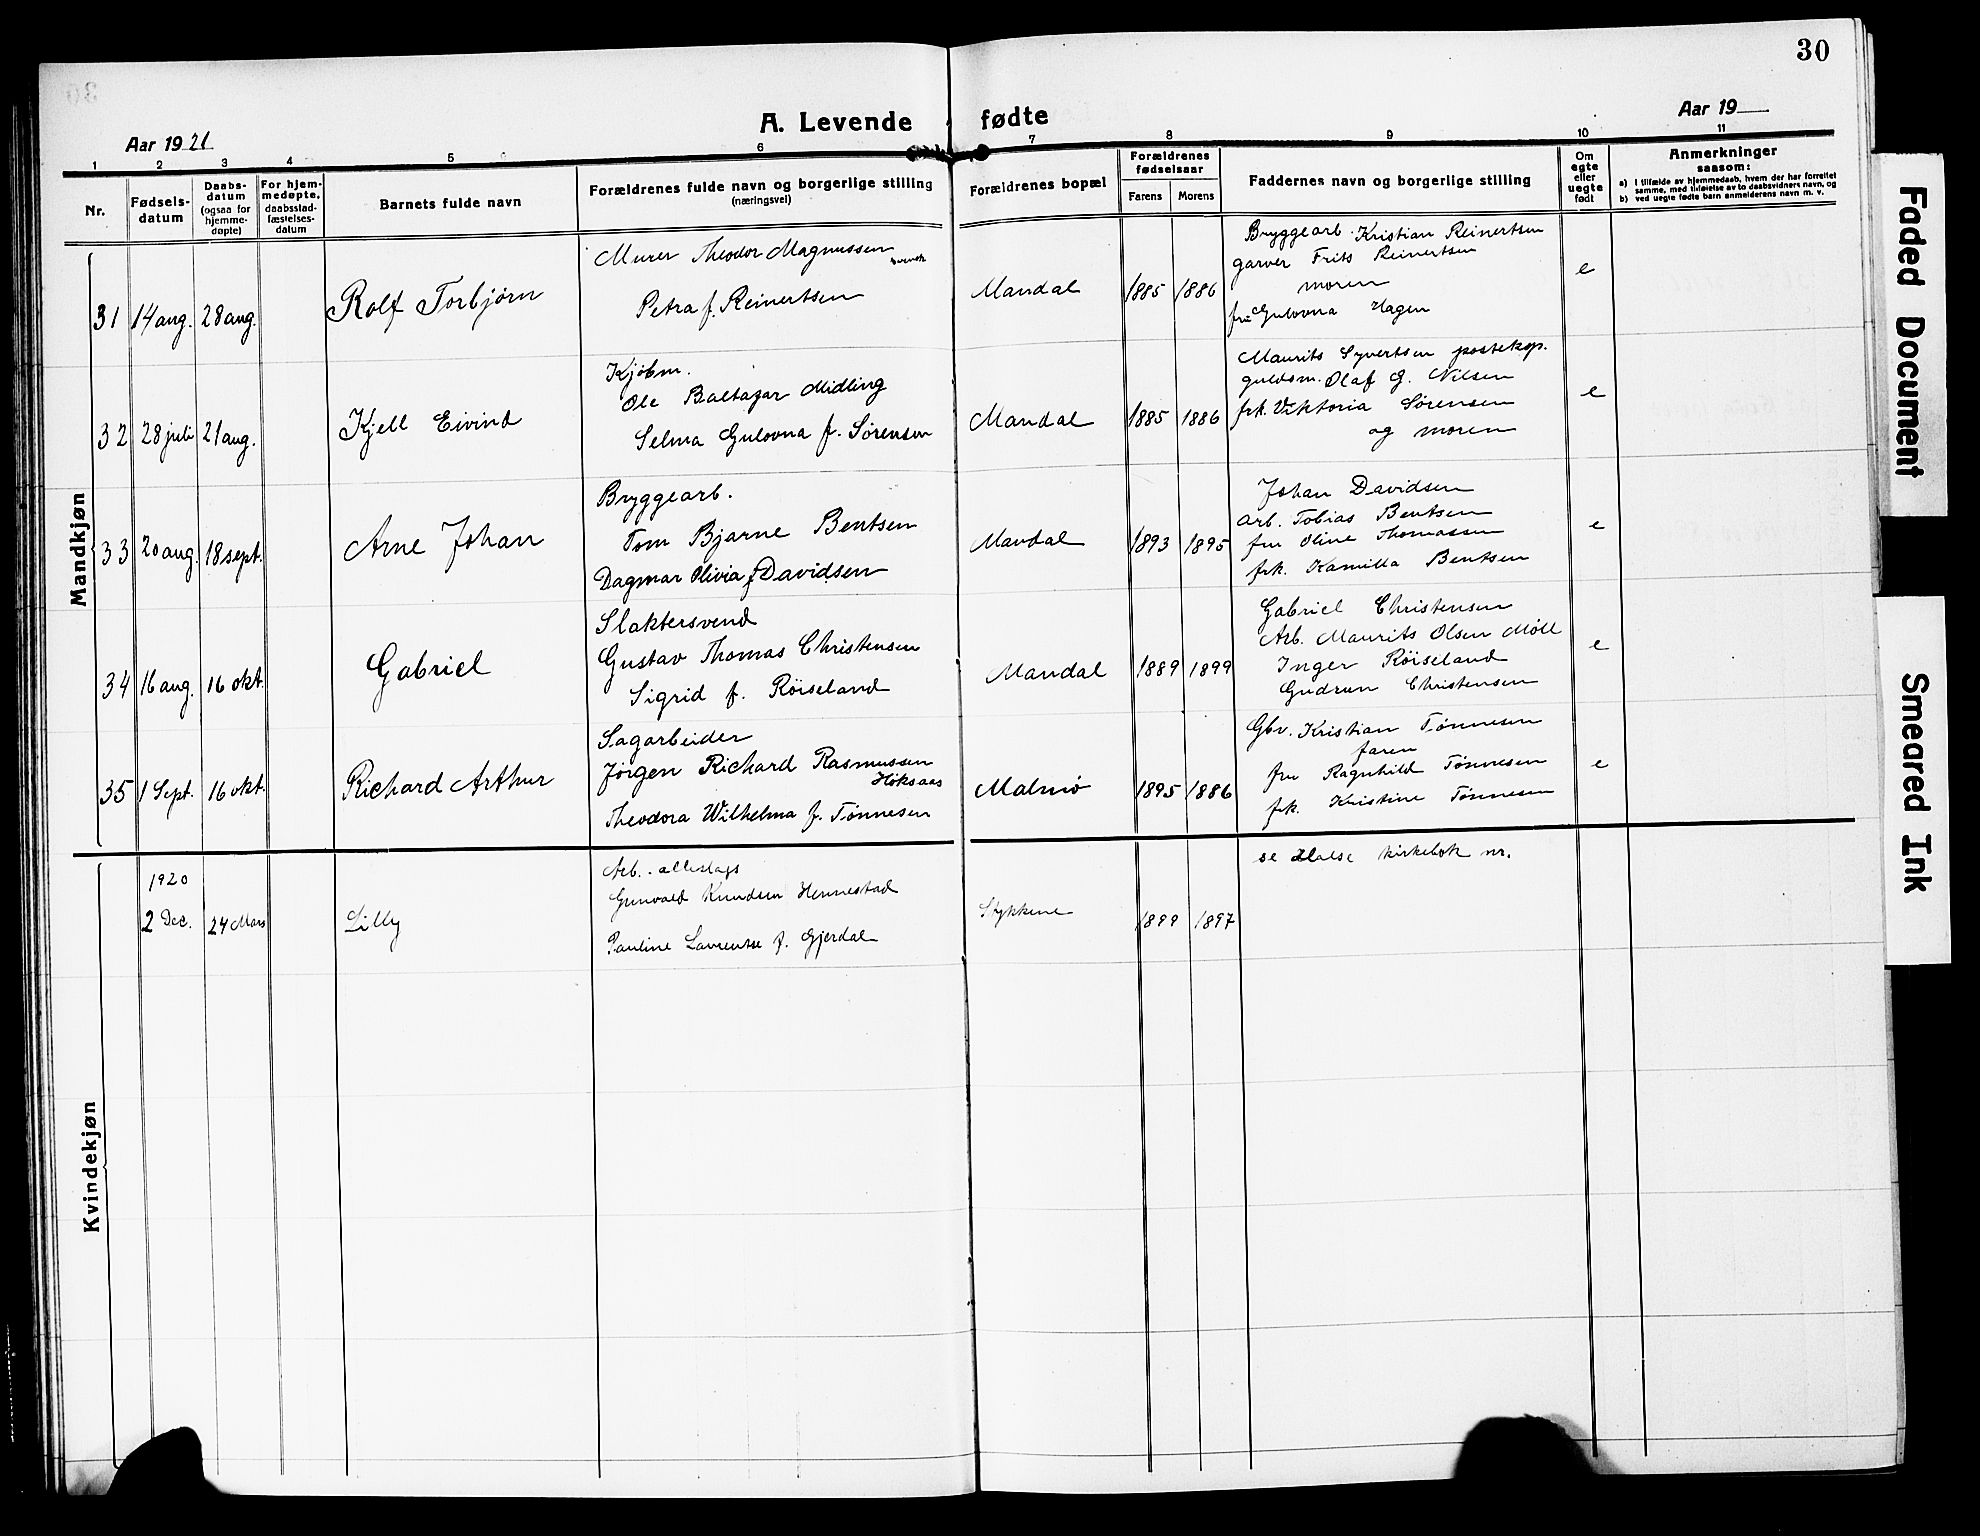 30
Aar 1921
A. Levende fødte
Aar 19
1 2 3 4 5 6 7 8 9 10 11
Nr.
Fødsels-
datum
Daabs-
datum
(ogsaa for
hjemme-
døpte)
For hjem-
medøpte,
daabsstad-
fæstelses-
datum
Barnets fulde navn
Forældrenes fulde navn og borgerlige stilling
(næringsvei)
Forældrenes bopæl
Forældrenes
fødselsaar
Farens Morens
Faddernes navn og borgerlige stilling
Om
egte
eller
uegte
født
Anmerkninger
saasom:
a) i tilfælde av hjemmedaab, hvem der har forrettet
samme, med tilføielse av to daabsvidners navn, og
b) ved uegte fødte barn anmelderens navn m. v.
Mandkjøn
31 14 aug. 28 aug.
Rolf Torbjørn
Murer Theodor Magnussen
Petra f. Reinertsen
Mandal 1885 1886
Bryggearb. Kristian Reinertsen
garver Frits Reinertsen
moren
fru Gulovna Hagen
e
32 28 juli 21 aug.
Kjell Eivind
Kjøbm.
Ole Baltazar Midling
Selma Gulovna f. Sørensen
Mandal 1885 1886
Maurits Syvertsen posteksp.
guldsm. Olaf G. Nilsen
frk. Viktoria Sørensen
og moren
e
33 20 aug. 18 sept.
Arne Johan
Bryggearb.
Tom Bjarne Bentsen
Dagmar Olivia f. Davidsen
Mandal 1893 1895
Johan Davidsen
arb. Tobias Bentsen
fru Oline Thomassen
frk. Kamilla Bentsen
e
34 16 aug. 16 okt.
Gabriel
Slaktersvend
Gustav Thomas Christensen
Sigrid f. Røiseland
Mandal 1889 1899
Gabriel Christensen
Arb. Maurits Olsen Møll
Inger Røiseland
Gudrun Christensen
e
35 1 Sept. 16 okt.
Richard Arthur
Sagarbeider
Jørgen Richard Rasmussen
Høksaas
Theodora Wilhelma f. Tønnesen
Malmø 1895 1886
Gbr. Kristian Tønnesen
faren
fru Ragnhild Tønnesen
frk. Kristine Tønnesen
e
Kvindekjøn
1920
2 Dec. 24 Mars
Lilly
Arb. alleslags
Gunvald Knudsen Hennestad
Pauline Laurentse f. Gjerdal
Stykkene 1899 1897
se Halse kirkebok nr.
Faded Document
Smeared Ink